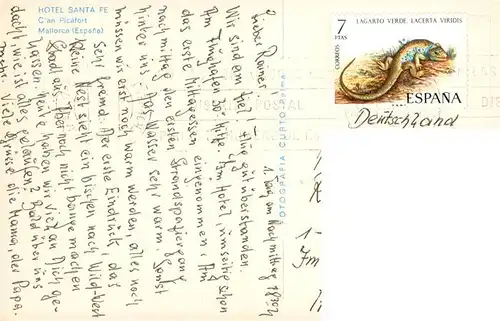 HOTEL SANTA FE
C'an Picafort
Mallorca (España)
7
PTAS
LAGARTO VERDE. LACERTA VIRIDIS
CORREOS
ESPAÑA
Deutschland
1. Tag am Nachmittag 18.30h
Lieber Rainer!
Wir sind am Ziel! Flug gut überstanden.
Am Flughafen 30° Hitze. Im Hotel
das erste Mittagessen eingenommen. Am
nachmittag den ersten Strandspaziergang
hinter uns. Das Wasser sehr warm. Sonst
müssen wir erst noch warm werden, alles noch
sehr fremd. Der erste Eindruck, das
kleine Nest sieht ein bischen nach Wild-West
aus. Aber noch nicht bange machen
lassen. heute haben wir viel an Dich ge-
dacht, wie ist alles gelaufen? Bald über uns
mehr. Viele Grüsse die Mama, der Papa.
FOTOGRAFIA